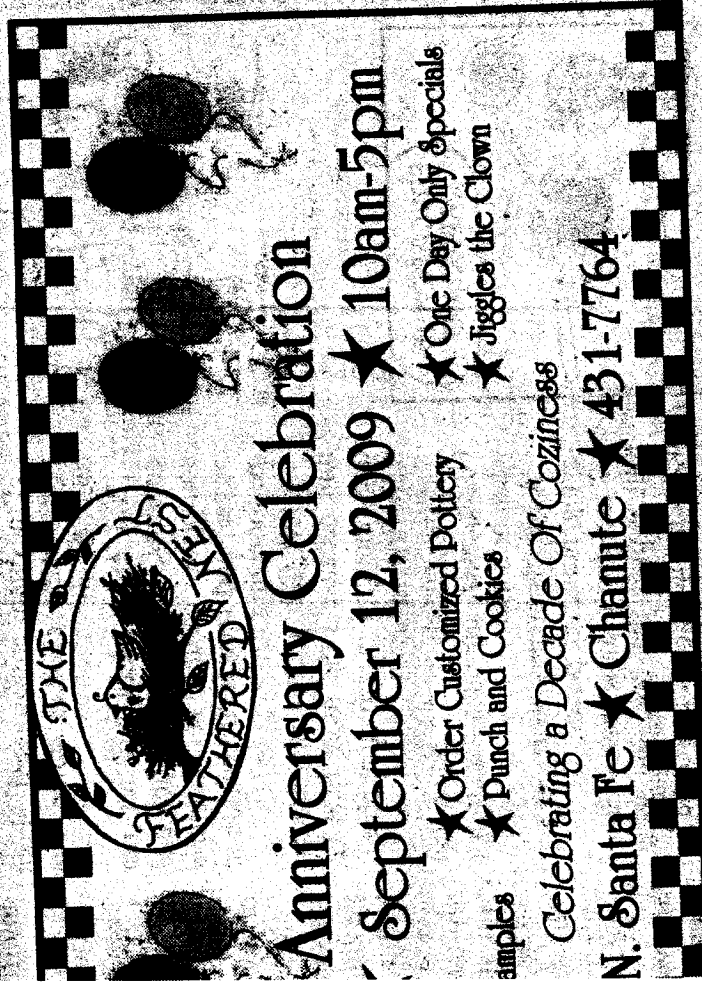 THE
FEATHERED NEST
Anniversary Celebration
September 12, 2009 ★ 10am-5pm
★ Order Customized Pottery ★ One Day Only Specials
amples ★ Punch and Cookies ★ Jiggles the Clown
Celebrating a Decade Of Coziness
N. Santa Fe ★ Chanute ★ 431-7764